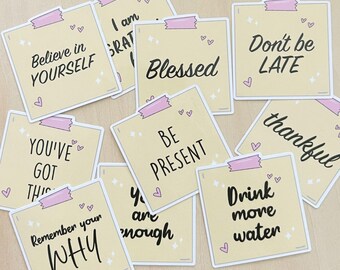 Believe in
YOURSELF
I am
Blessed
Don't be
LATE
YOU'VE
GOT
THIS
BE
PRESENT
thankful
Remember your
WHY
You
are
enough
Drink
more
water